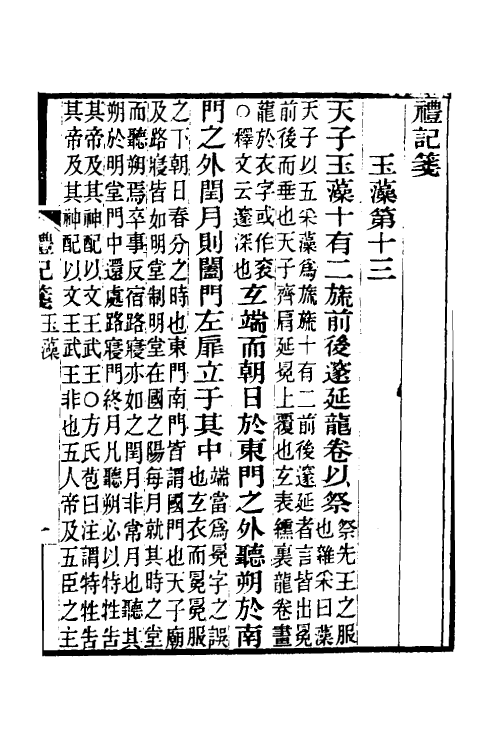 禮記箋
玉藻第十三
天子玉藻十有二旒前後邃延龍卷以祭祭先王之服
也雜采曰藻
天子以五采藻爲旒旒十有二前後邃延者言皆出冕
前後而垂也天子齊肩延冕上覆也玄表纁裏龍卷畫
龍於衣字或作衮
○釋文云邃深也
玄端而朝日於東門之外聽朔於南
門之外閏月則闔門左扉立于其中端當爲冕字之誤
也玄衣而冕冕服
之下朝日春分之時也東門南門皆謂國門也天子廟
及路寢皆如明堂制明堂在國之陽每月就其時之堂
而聽朔焉卒事反宿路寢亦如之閏月非常月也聽其
朔於明堂門中還處路寢門終月凡聽朔必以特牲告
其帝及其神配以文王武王○方氏苞曰注謂特牲告
其帝及其神配以文王武王非也五人帝及五臣之主
禮記箋 玉藻 一